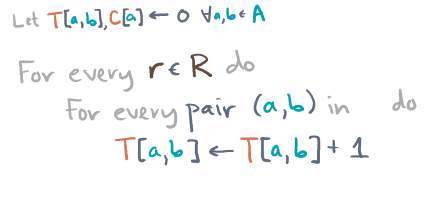 Let T[a,b],C[a] ← 0 ∀a,b ∈ A
For every r ∈ R do
For every pair (a,b) in do
T[a,b] ← T[a,b] + 1